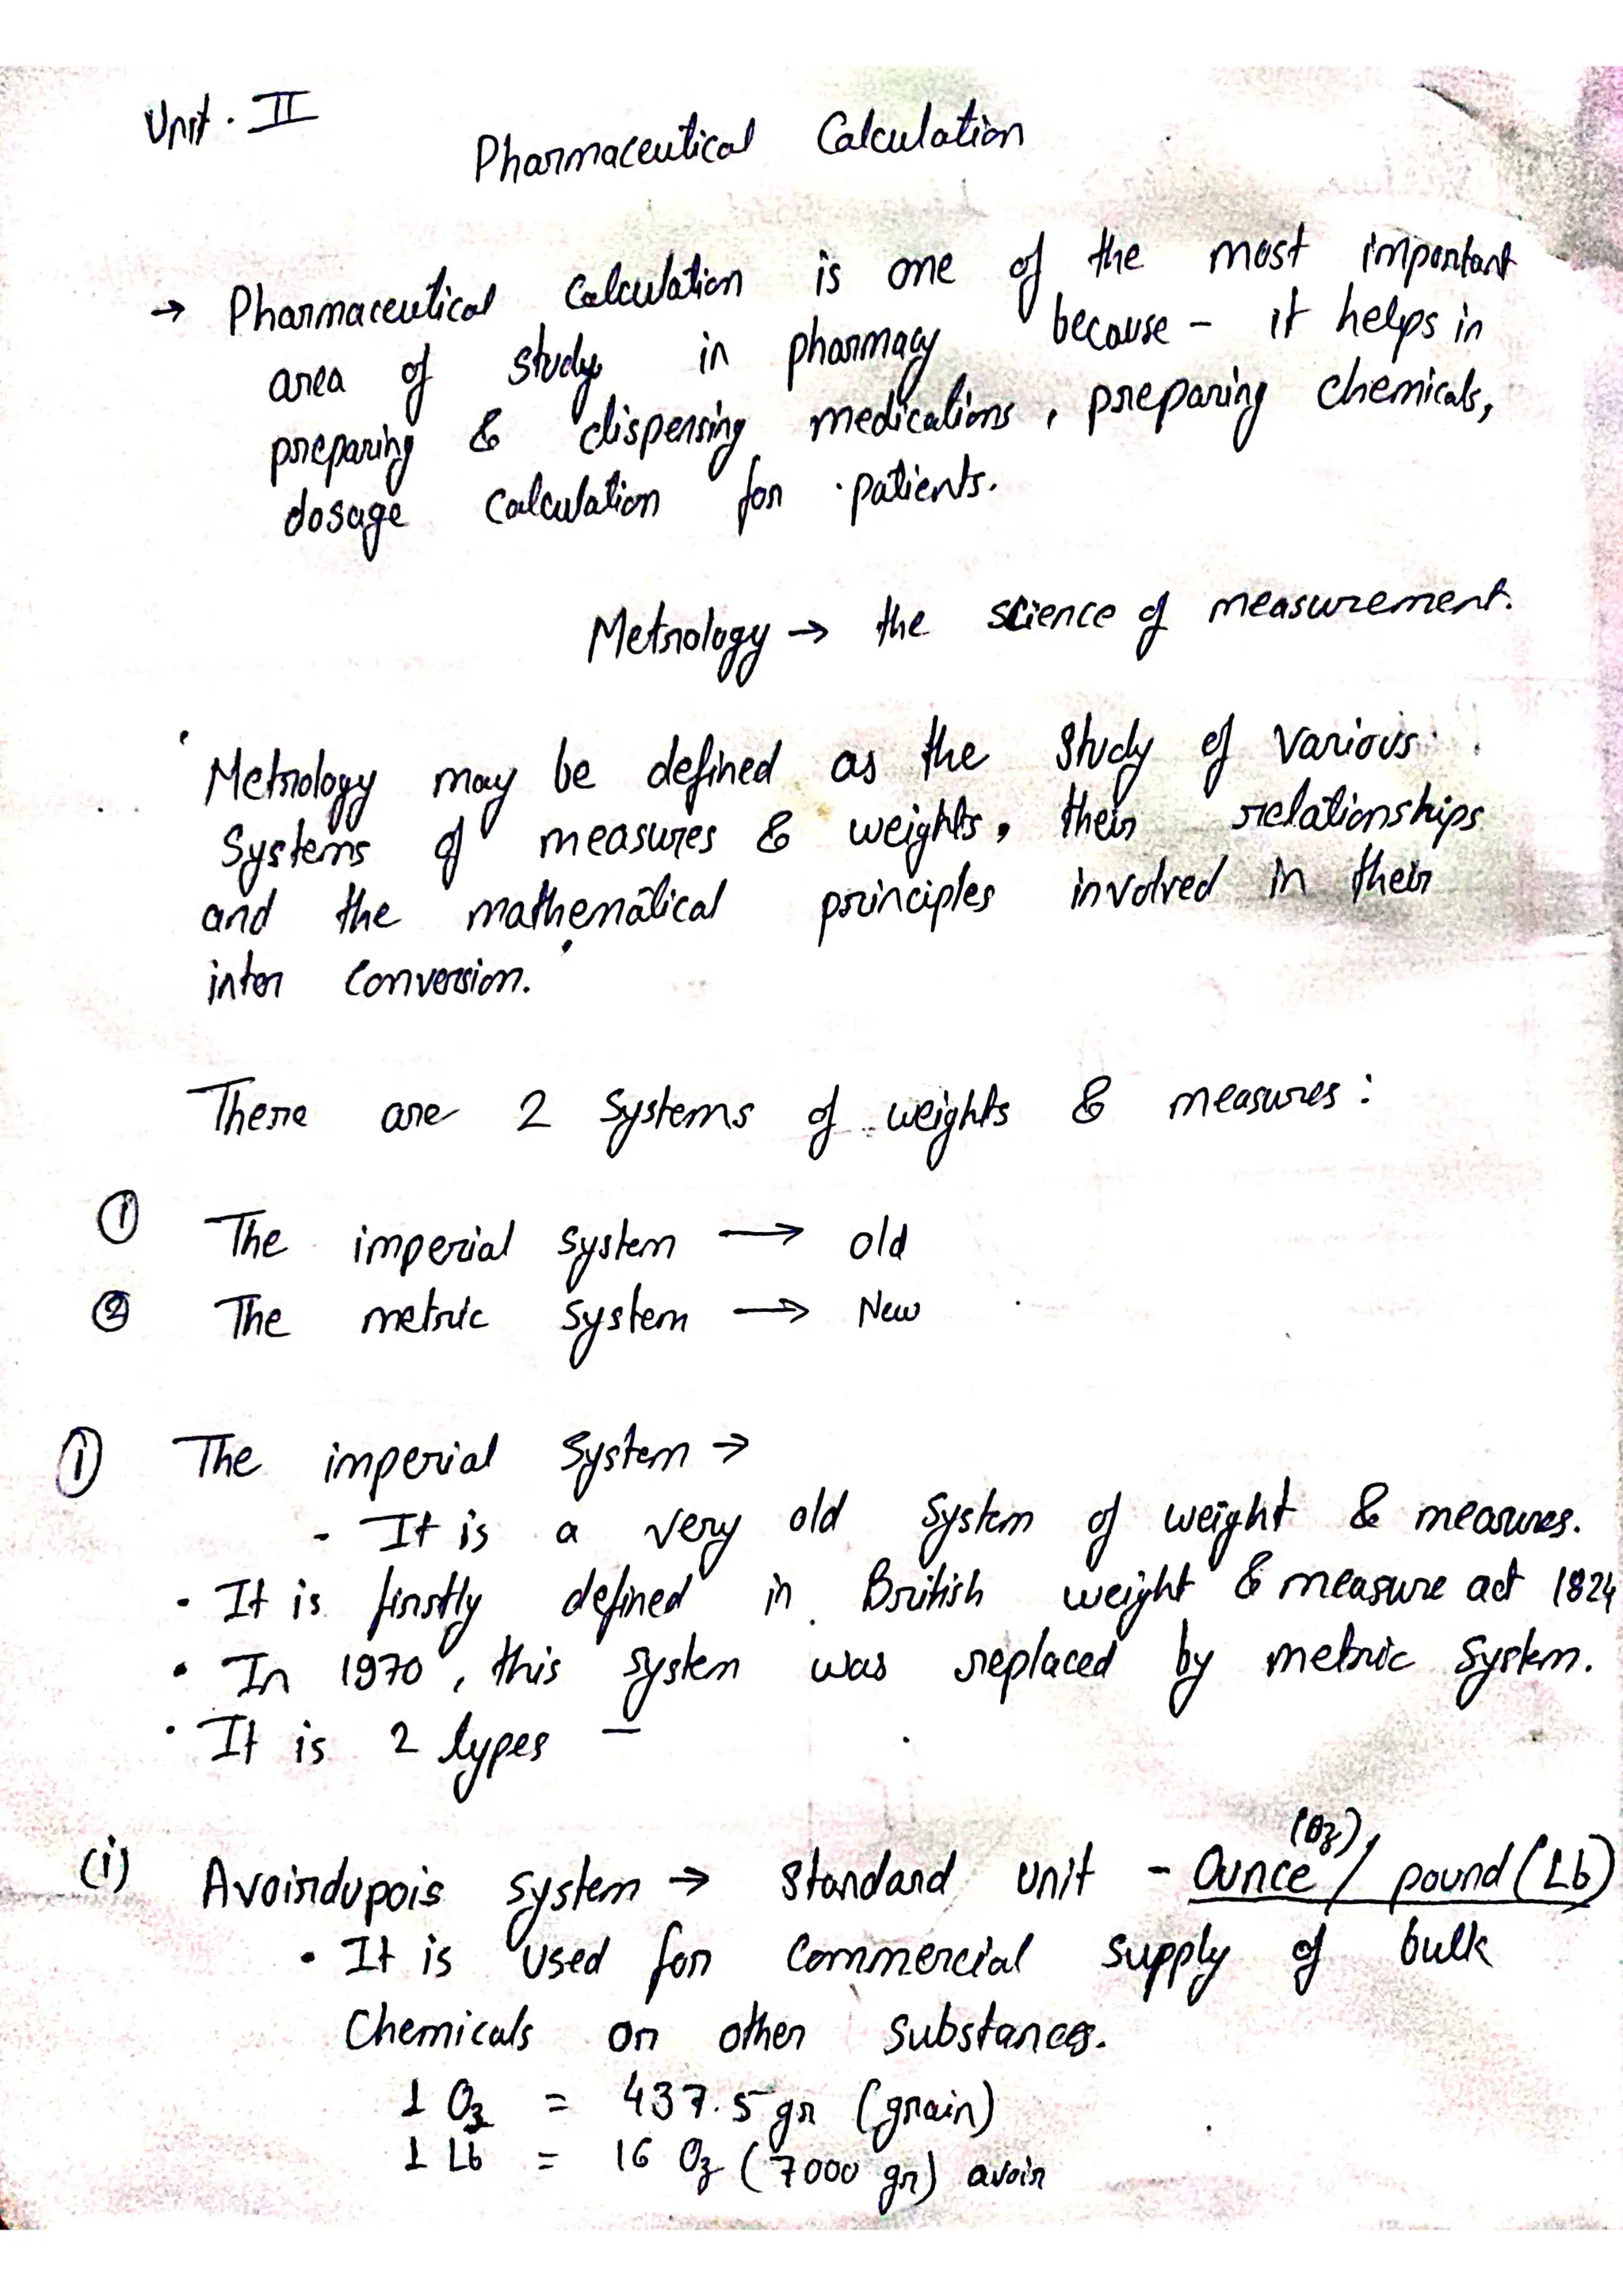 Unit. II
Pharmaceutical Calculation
→ Pharmaceutical Calculation is one of the most important
area of study in pharmacy because - it helps in
preparing & dispensing medications, preparing chemicals,
dosage Calculation for patients.
Metrology → the science of measurement.
Metrology may be defined as the study of various
Systems of measures & weights, their relationships
and the mathematical principles involved in their
inter Conversion.
There are 2 Systems of weights & measures:
① The imperial system → old
② The metric system → New
① The imperial System →
- It is a very old System of weight & measures.
• It is firstly defined in British weight & measure act 1824
• In 1970, this system was replaced by metric System.
• It is 2 types -
(Oz)
(i) Avoirdupois system → Standard unit - Ounce / pound (Lb)
• It is used for Commercial supply of bulk
Chemicals or other substances.
1 Oz = 437.5 gr (grain)
1 Lb = 16 Oz (7000 gr) avoir